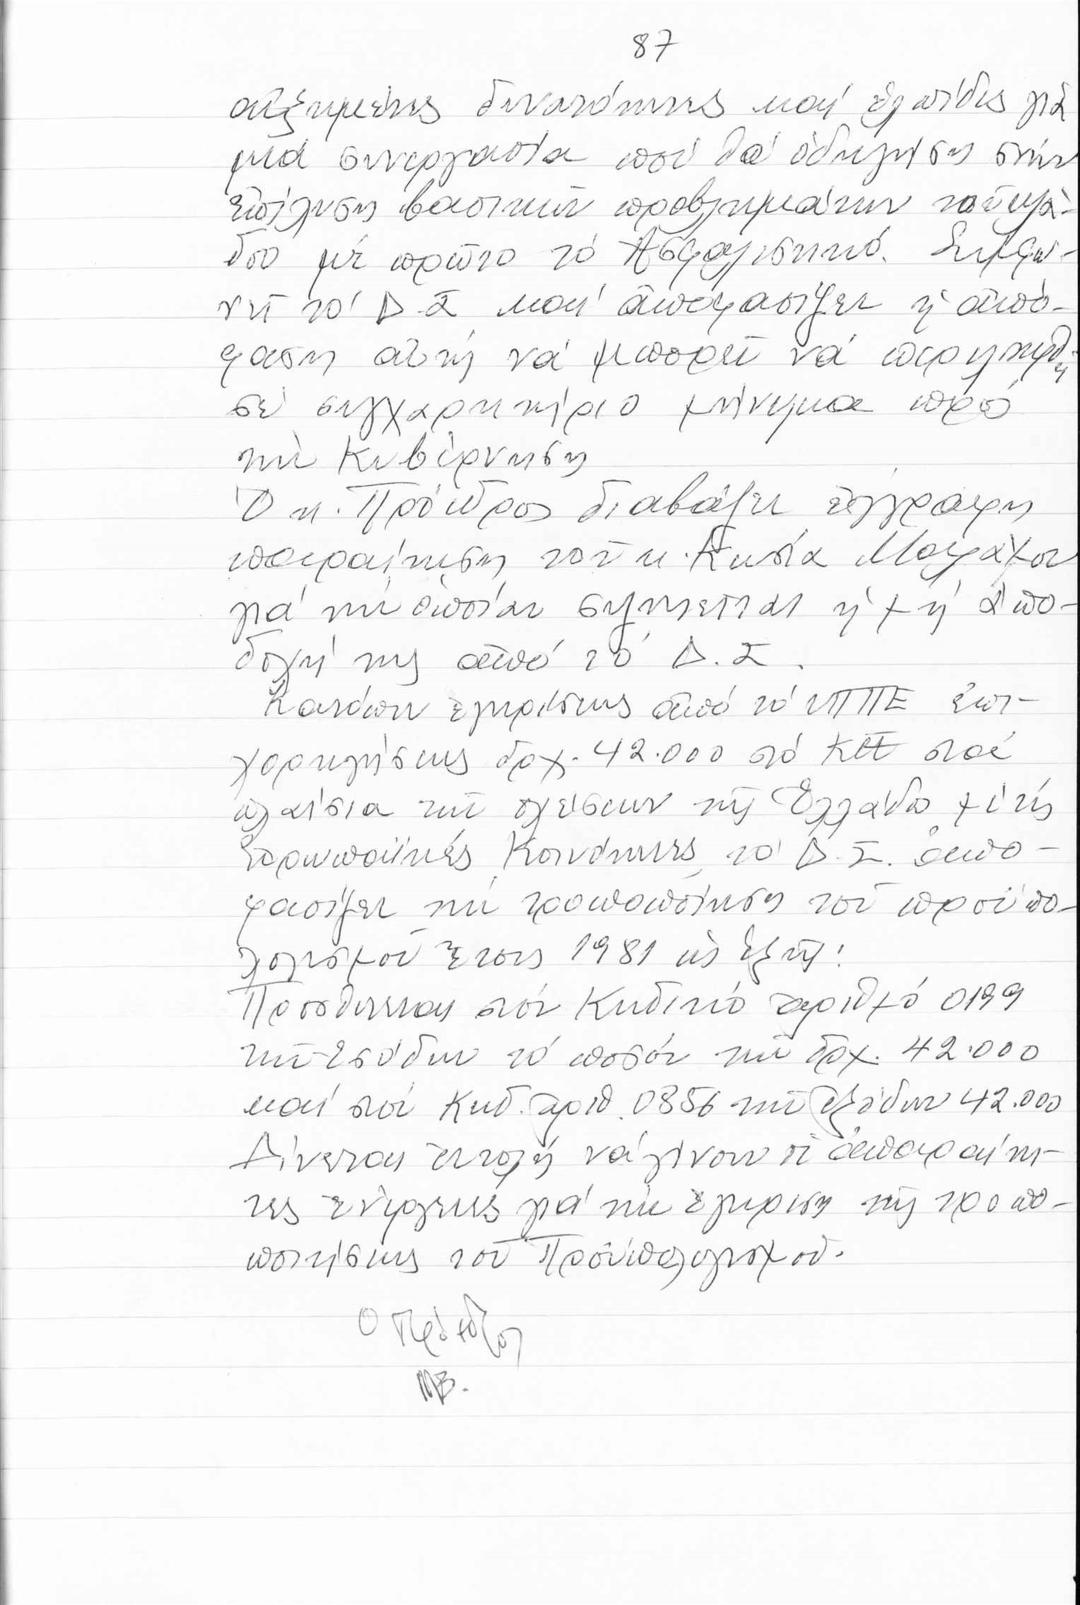 87
αὐξημένες δυνατότητες καί ἐλπίδες γιά
μιά συνεργασία πού θά ὁδηγήση στήν
ἐπίλυση βασικῶν προβλημάτων τοῦ κλά-
δου μέ πρῶτο τό Ἀσφαλιστικό. Συμφω-
νεῖ τό Δ.Σ καί ἀποφασίζει ἡ ἀπό-
φαση αὐτή νά μπορεῖ νά περιληφθῆ
σέ συγχαρητήριο μήνυμα πρό
τήν Κυβέρνηση
Ὁ κ. Πρόεδρος διαβάζει ἔγγραφη
παραίτηση τοῦ κ. Κωστα
γιά τήν ὁποίαν συζητεῖται ἡ μή ἀπο-
δοχή της ἀπό τό Δ.Σ.
Κατόπιν ἐγκρίσεως ἀπό τό ΥΠΠΕ ἐπι-
χορηγήσεως δρχ. 42.000 στό ΚΕΕ στά
πλαίσια τῶν σχέσεων τῆς Ἑλλάδο μέ τίς
Εὐρωπαϊκές Κοινότητες τό Δ.Σ. ἀπο-
φασίζει τήν τροποποίηση τοῦ προϋπο-
λογισμοῦ ἔτους 1981 ὡς ἑξῆς:
Προσθέτεται στόν Κωδικό ἀριθμό 0199
τῶν Ἐσόδων τό ποσόν τῶν δρχ. 42.000
καί στόν Κωδ. ἀριθ. 0856 τῶν ἐξόδων 42.000
Δίνεται ἐντολή νά γίνουν οἱ ἀπαραίτη-
τες ἐνέργειες γιά τήν ἔγκριση τῆς τροπο-
ποιήσεως τοῦ Προϋπολογισμοῦ.
Ο Πρόεδρος
ΜΒ.